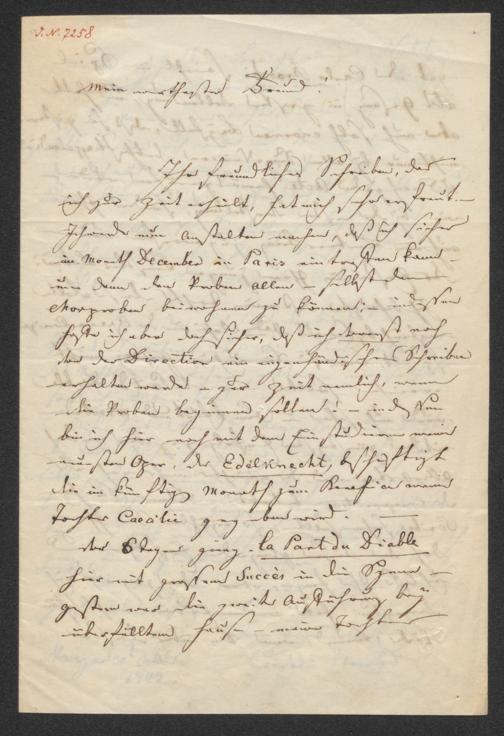 J.N. 7258
Mein werthester Freund!
Ihr freundliches Schreiben, das
ich zur Zeit erhielt, hat mich sehr erfreut. –
Ich werde nun Anstalten machen, daß ich sicher
im Month December in Paris eintreffen kann –
um dann den Proben allen – selbst den
Chorproben beiwohnen zu können; – indessen
hoffe ich aber doch sicher, daß ich vorerst noch
von der Direction ein eigenhändisches Schreiben
erhalten werde – zur Zeit nemlich, wann
die Proben beginnen sollen! –
bin ich hier noch mit dem Einstudieren meiner
neuesten Oper, der Edelknecht, beschäftigt
die im künftigen Monath zum Benefice meiner
Tochter Caecilie gegeben wird. –
Vor 8 Tagen ging la Part du Diable
hier mit grossem Succès in die Szene –
gestern war die zweite Aufführung bey
überfülltem Hause – meine Tochter